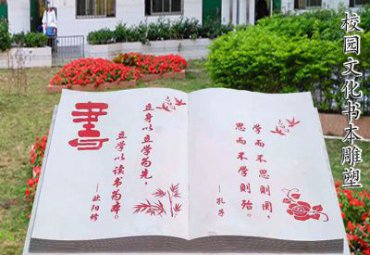 校园文化书本雕塑
書
立身以立学为先，
立学以读书为本。
——欧阳修
学而不思则罔，
思而不学则殆。
——孔子